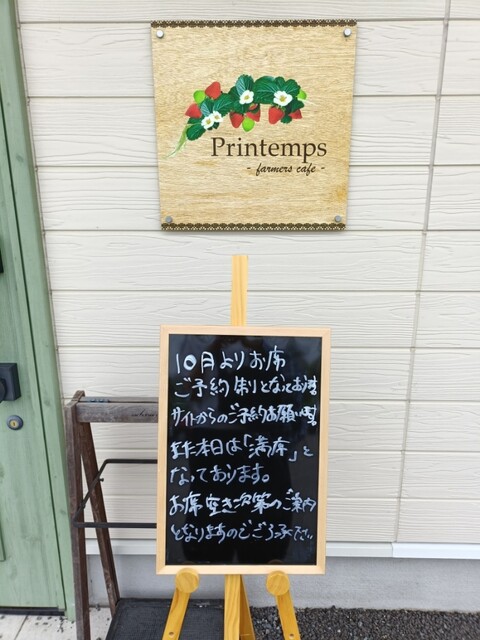 Printemps
- farmers cafe -
10月よりお席
ご予約制となっております
サイトからのご予約お願い致します
また本日は「満席」と
なっております。
お席空き次第のご案内
となりますのでご了承下さい